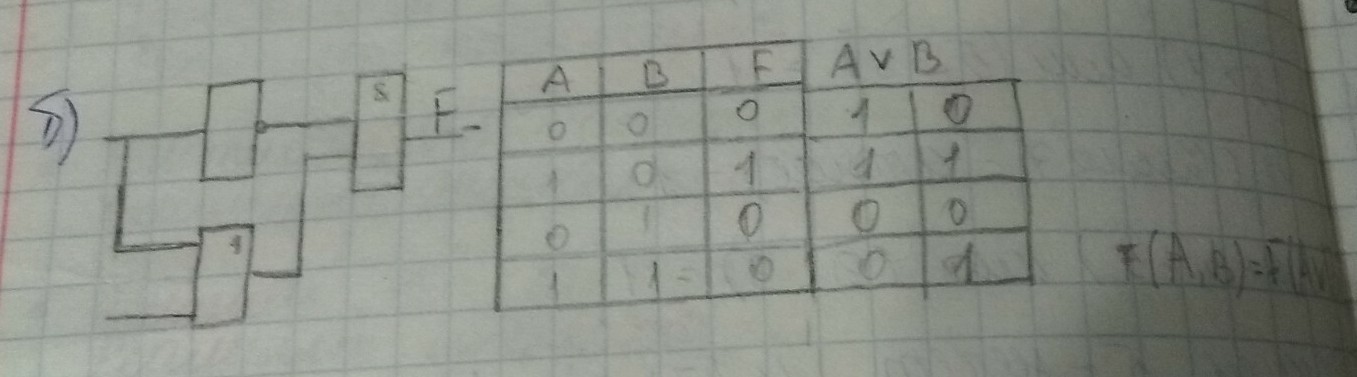 б)
&
1
F
A B F A V B
0 0 0 1 0
1 0 1 1 1
0 1 0 0 0
1 1 0 0 1
F(A,B)=